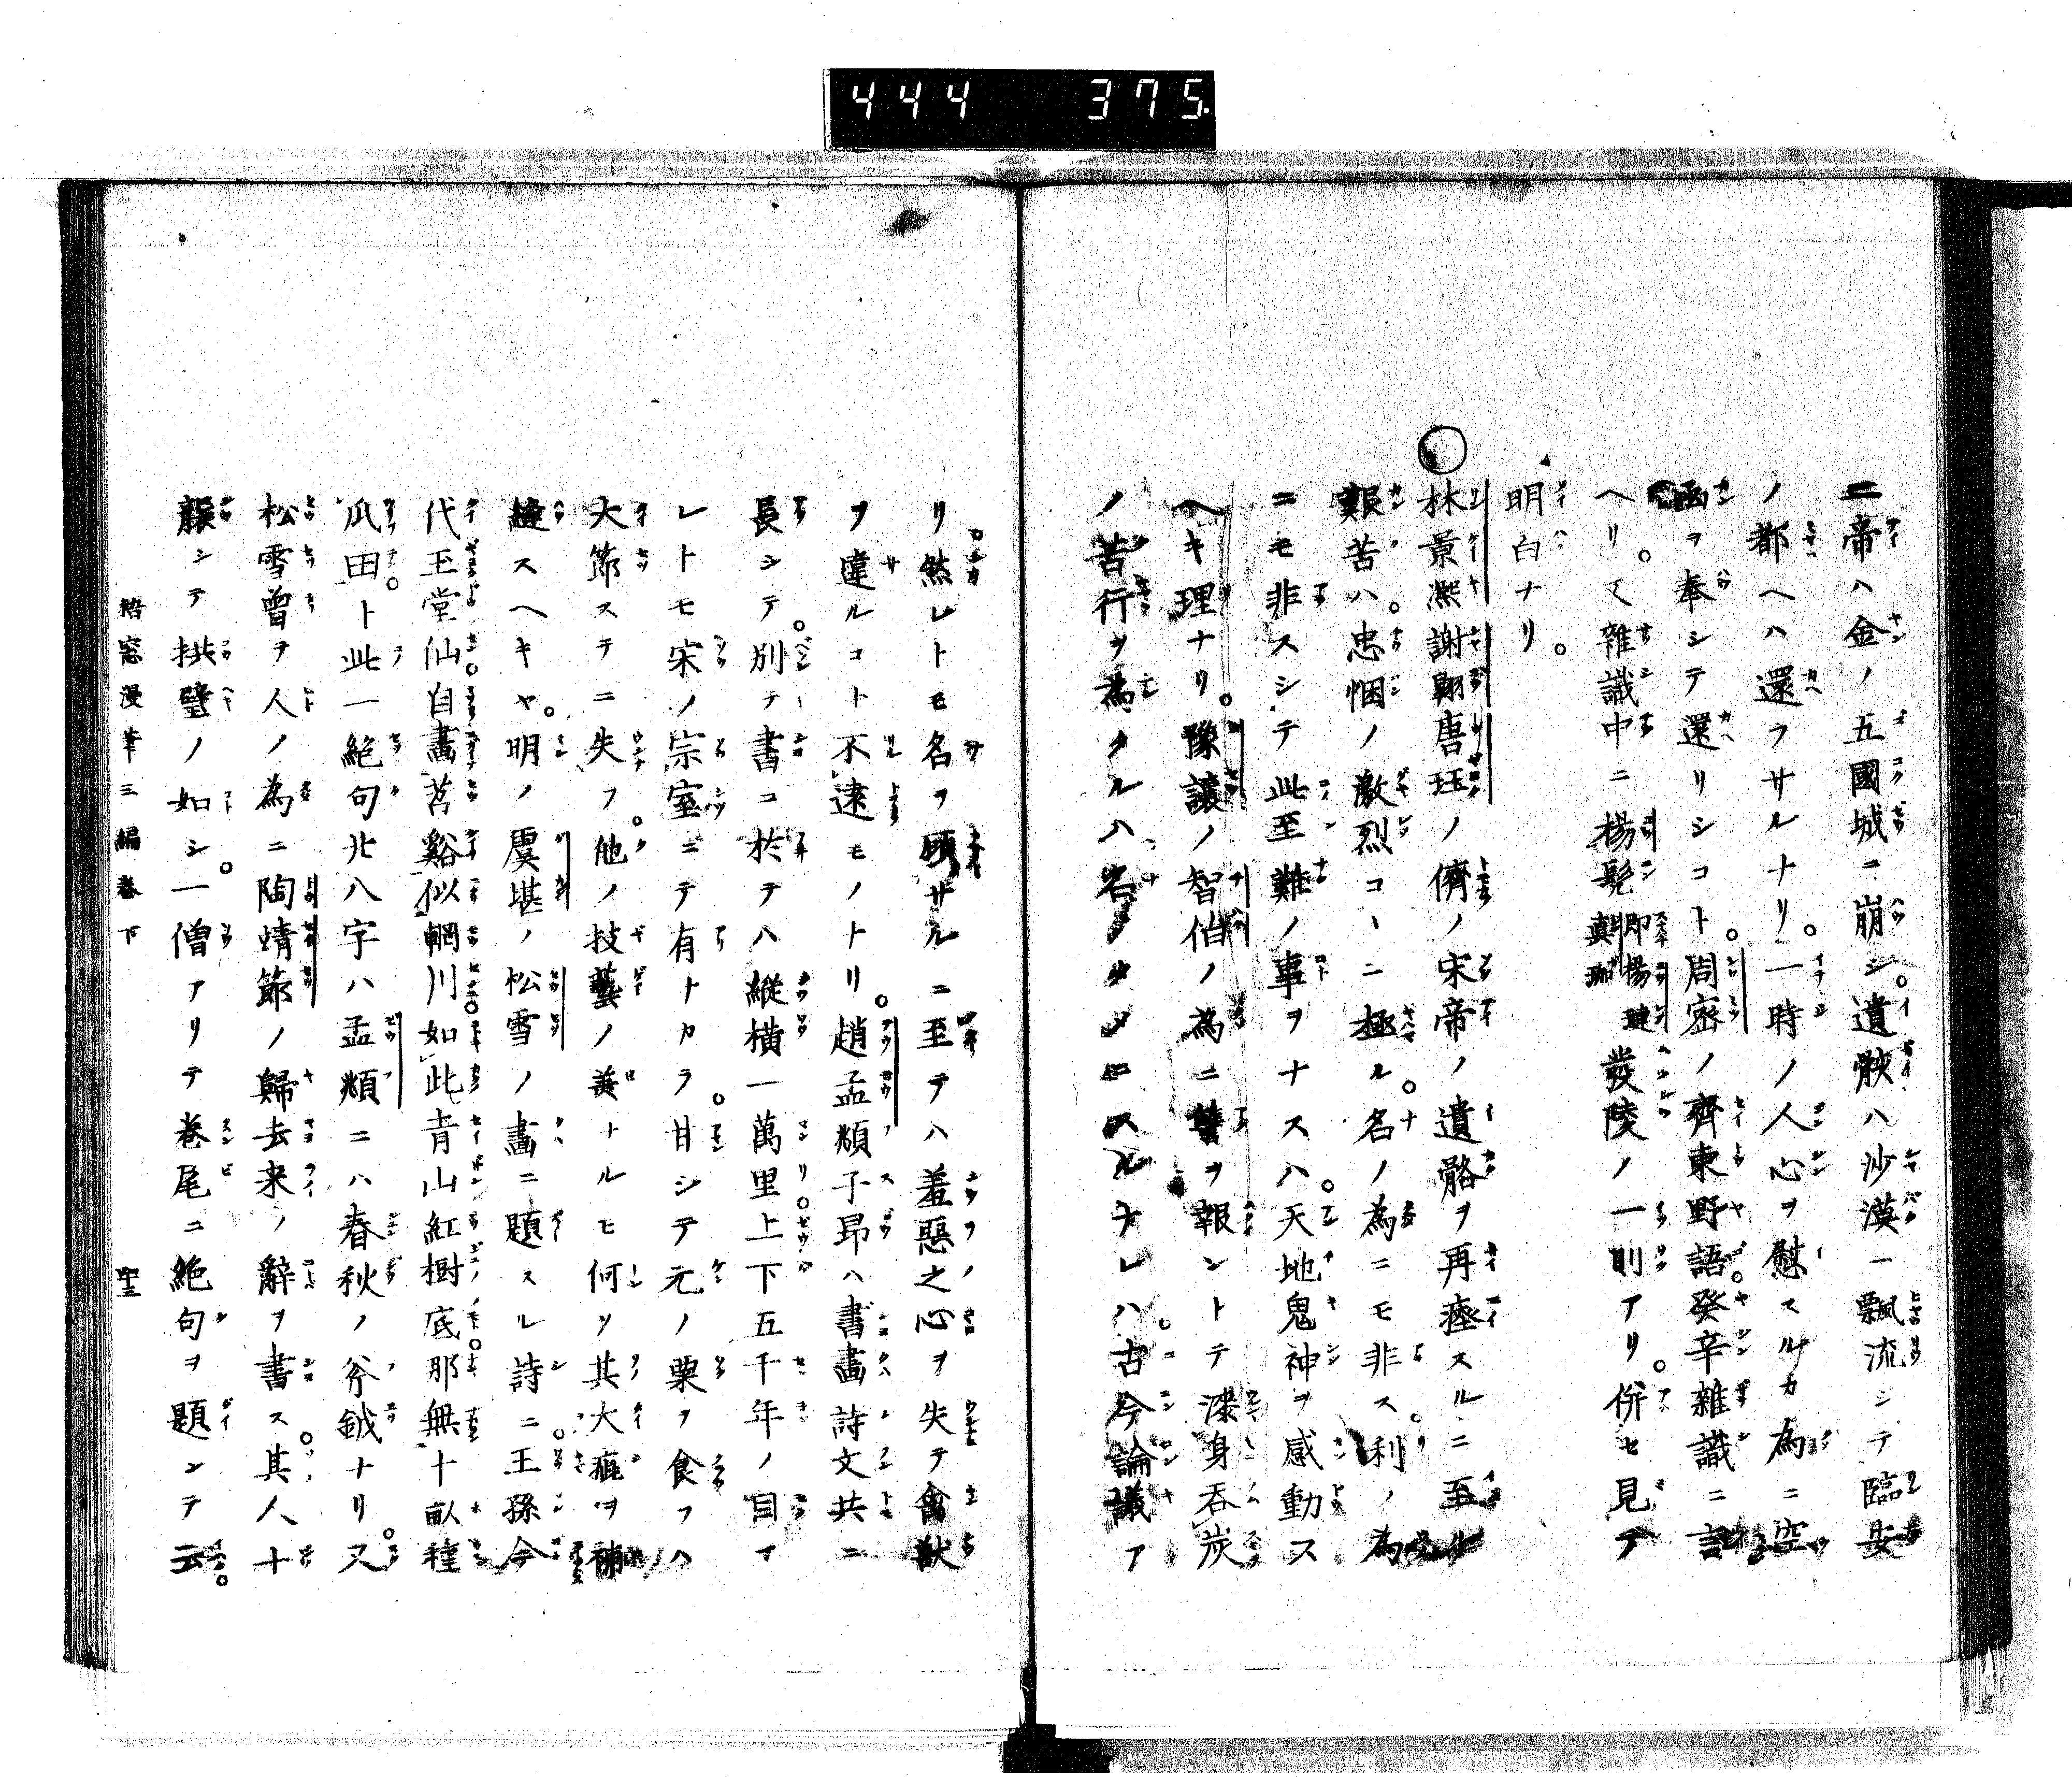 444 375.
二帝ハ金ノ五國城ニ崩シ。遺骸ハ沙漠ニ飄流シテ臨安
ノ都ヘハ還フサルナリ。一時ノ人心ヲ慰スルカ為ニ空
函ヲ奉シテ還リシコト。周密ノ齊東野語。癸辛雜識ニ言
ヘリ。又雜識中ニ楊髡即楊璉真珈發陵ノ一則アリ。併セ見テ
明白ナリ。
林景凞謝翺唐珏ノ儕ノ宋帝ノ遺骼ヲ再瘞スルニ至ル
艱苦ハ。忠悃ノ激烈コヽニ極ル。名ノ為ニモ非ス。利ノ為
ニモ非スシテ此至難ノ事ヲナスハ。天地鬼神ヲ感動ス
ヘキ理ナリ。豫讓ノ智伯ノ為ニ讐ヲ報ントテ漆身呑炭
ノ苦行ヲ為タルハ名ノタメニスルナレハ。古今論議ア
リ。然レトモ名ヲ顧ザルニ至テハ羞惡之心ヲ失テ禽獣
ヲ違ルコト不逮モノトリ。趙孟頫子昂ハ書畫詩文共ニ
長シテ。別テ書コ於テハ縦横一萬里。上下五千年ノ目ア
レトモ宋ノ宗室ニテ有ナカラ。甘シテ元ノ粟ヲ食フハ
大節ステニ失フ。他ノ技藝ノ美ナルモ何ソ其大疵ヲ補
縫スヘキヤ。明ノ虞堪ノ松雪ノ畫ニ題スル詩ニ。王孫今
代玉堂仙。自畫苕谿似輞川。如此青山紅樹底。那無十畝種
瓜田。ト此一絶句北八字ハ孟頫ニハ春秋ノ斧鉞ナリ。又
松雪曽ヲ人ノ為ニ陶靖節ノ歸去来ノ辭ヲ書ス。其人十
襲シテ拱璧ノ如シ。一僧アリテ巻尾ニ絶句ヲ題シテ云。
梧窓漫筆三編巻下